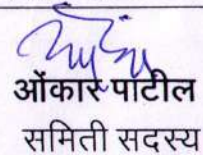 ओंकार पाटील
समिती सदस्य